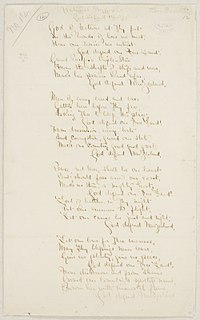 National Hymn
God of Nations at Thy feet
In the bonds of love we meet,
Hear our voices, we entreat
God defend our Free Land.
Guard Pacific's triple star
From the shafts of strife and war,
Make her praises heard afar
God defend New Zealand.
Men of every creed and race
Gather here before Thy face
Asking Thee to bless this place
God defend our Free Land
From dissension, envy, hate
And corruption guard our state
Make our country good and great
God defend New Zealand.
Peace, not war, shall be our boast
But should foes assail our coast
Make us then a mighty host
God defend our Free Land
Lord of battles in thy might
Put our enemies to flight
Let our cause be just and right
God defend New Zealand.
Let our love for Thee increase,
May Thy blessings never cease
Give us plenty, give us peace,
God defend our Free Land,
From dishonour and from shame
Guard our country's spotless name
Crown her with immortal fame
God defend New Zealand